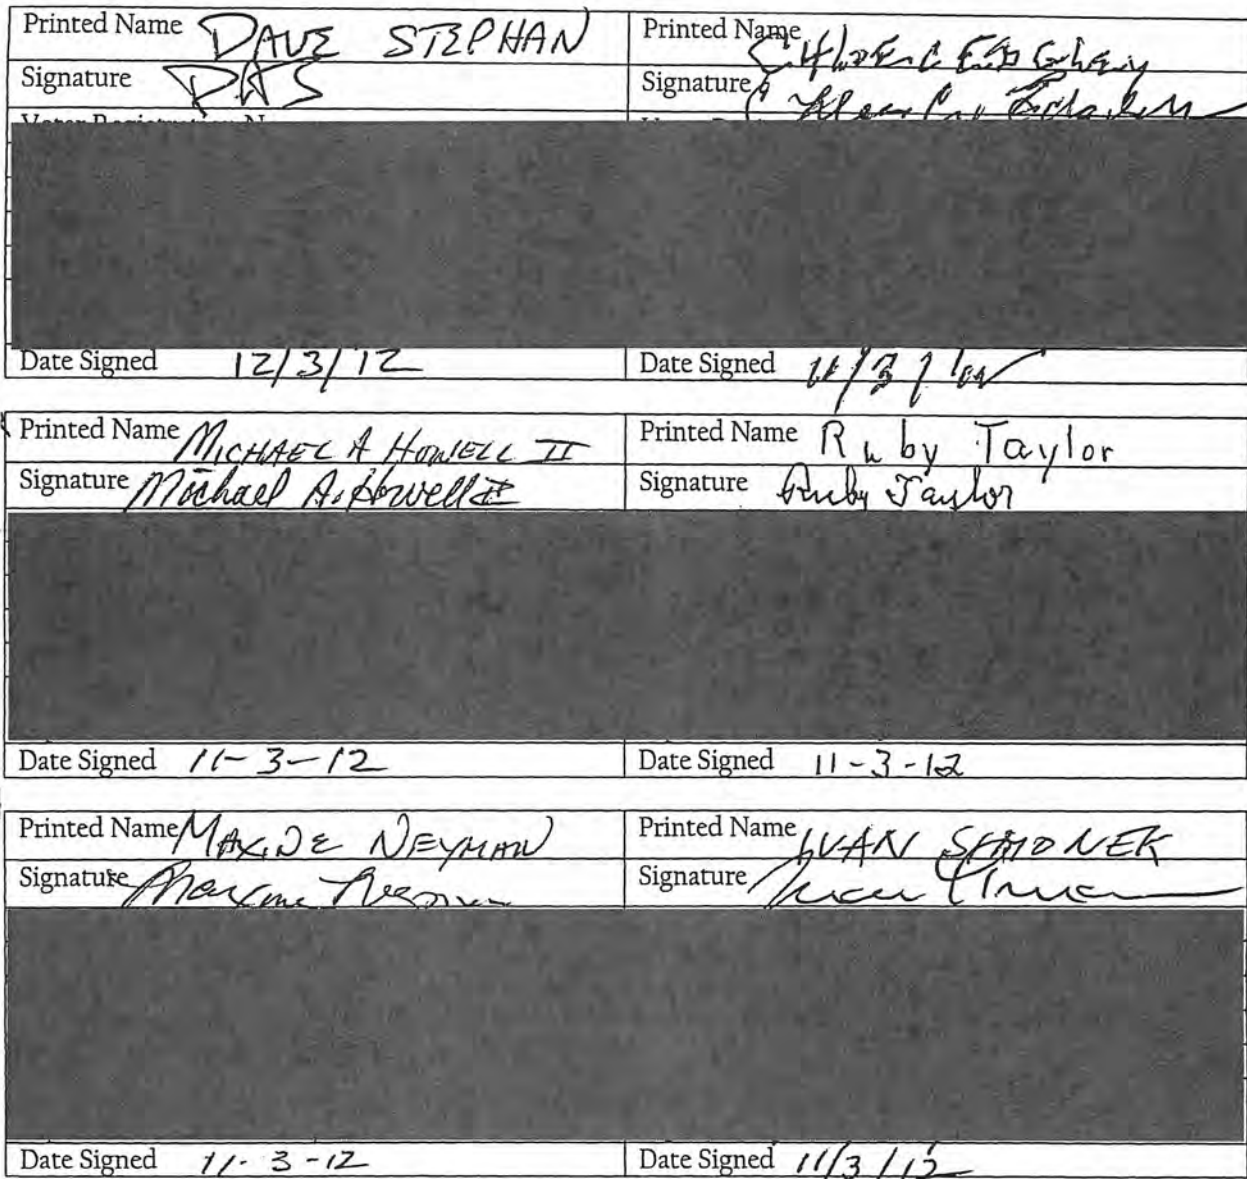 Printed Name DAVE STEPHAN
Signature DAS
Voter Registration N
Date Signed 12/3/12
Printed Name
Signature
Date Signed 11/3/
Printed Name MICHAEL A HOWELL II
Signature Michael A. Howell II
Date Signed 11-3-12
Printed Name Ruby Taylor
Signature Ruby Taylor
Date Signed 11-3-12
Printed Name MAXINE NEYMAN
Signature Maxine
Date Signed 11-3-12
Printed Name IVAN SIMONEK
Signature
Date Signed 11/3/12